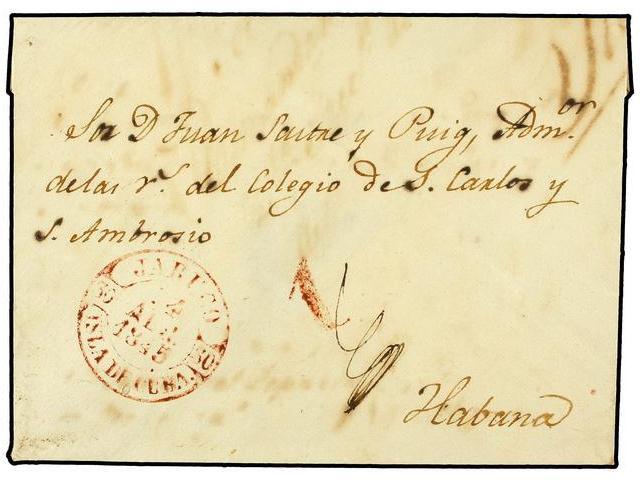 Sor D Juan Sastre y Puig, Adm.or
de las r.s del Colegio de S. Carlos y
S. Ambrosio
JARUCO
2
1845
ISLA DE CUBA.
Habana